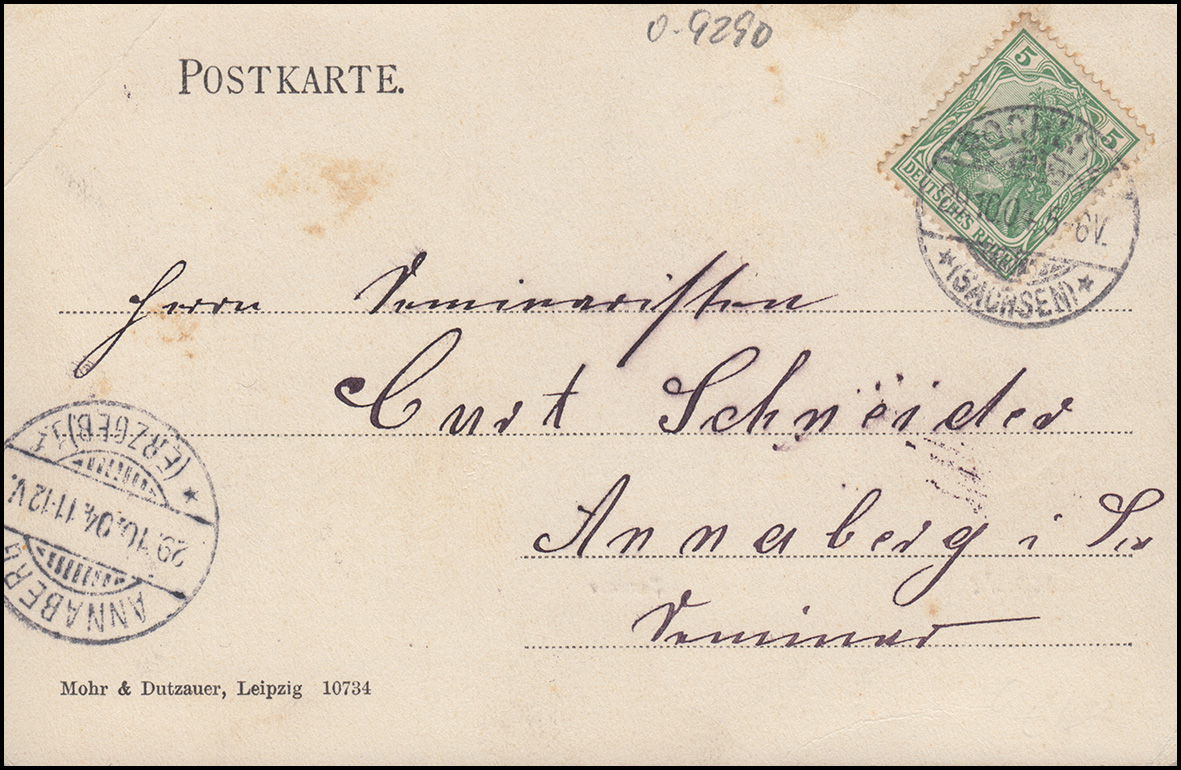 0-9290
POSTKARTE.
5 5
DEUTSCHES REICH
10.04. 5-6V.
*(SACHSEN)*
Herrn Seminaristen
Curt Schneider
Annaberg i
Seminar
ANNABERG
29.10.04.11-12V.
* (ERZGEB)
Mohr & Dutzauer, Leipzig 10734